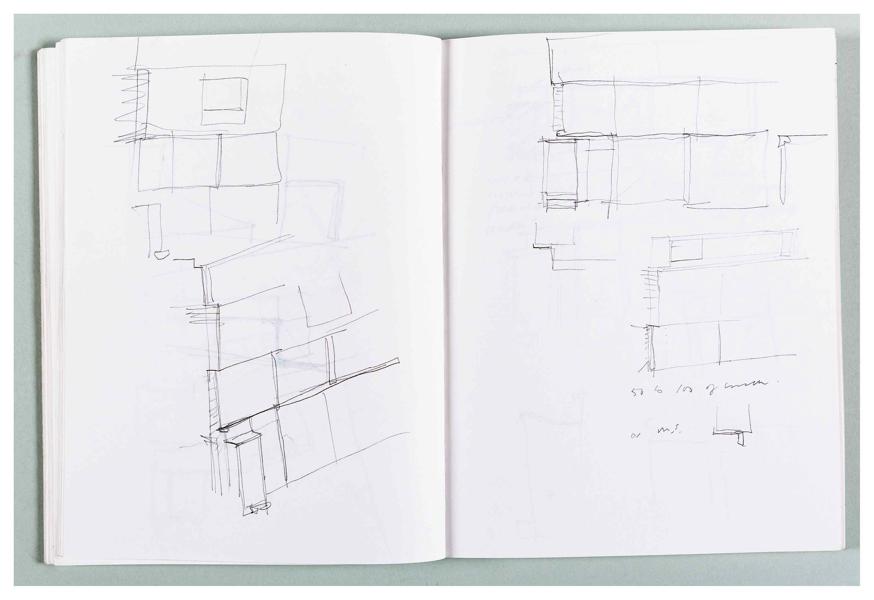 50 to 100 of
or m.s.